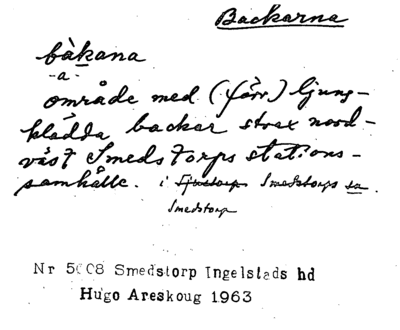 Backarna
bàkana
-a-
område med (förr.) ljung-
klädda backar strax nord-
väst Smedstorps stations-
samhälle. i Smedstorps sn.
Smedstorp
Nr 5008 Smedstorp Ingelstads hd
Hugo Areskoug 1963